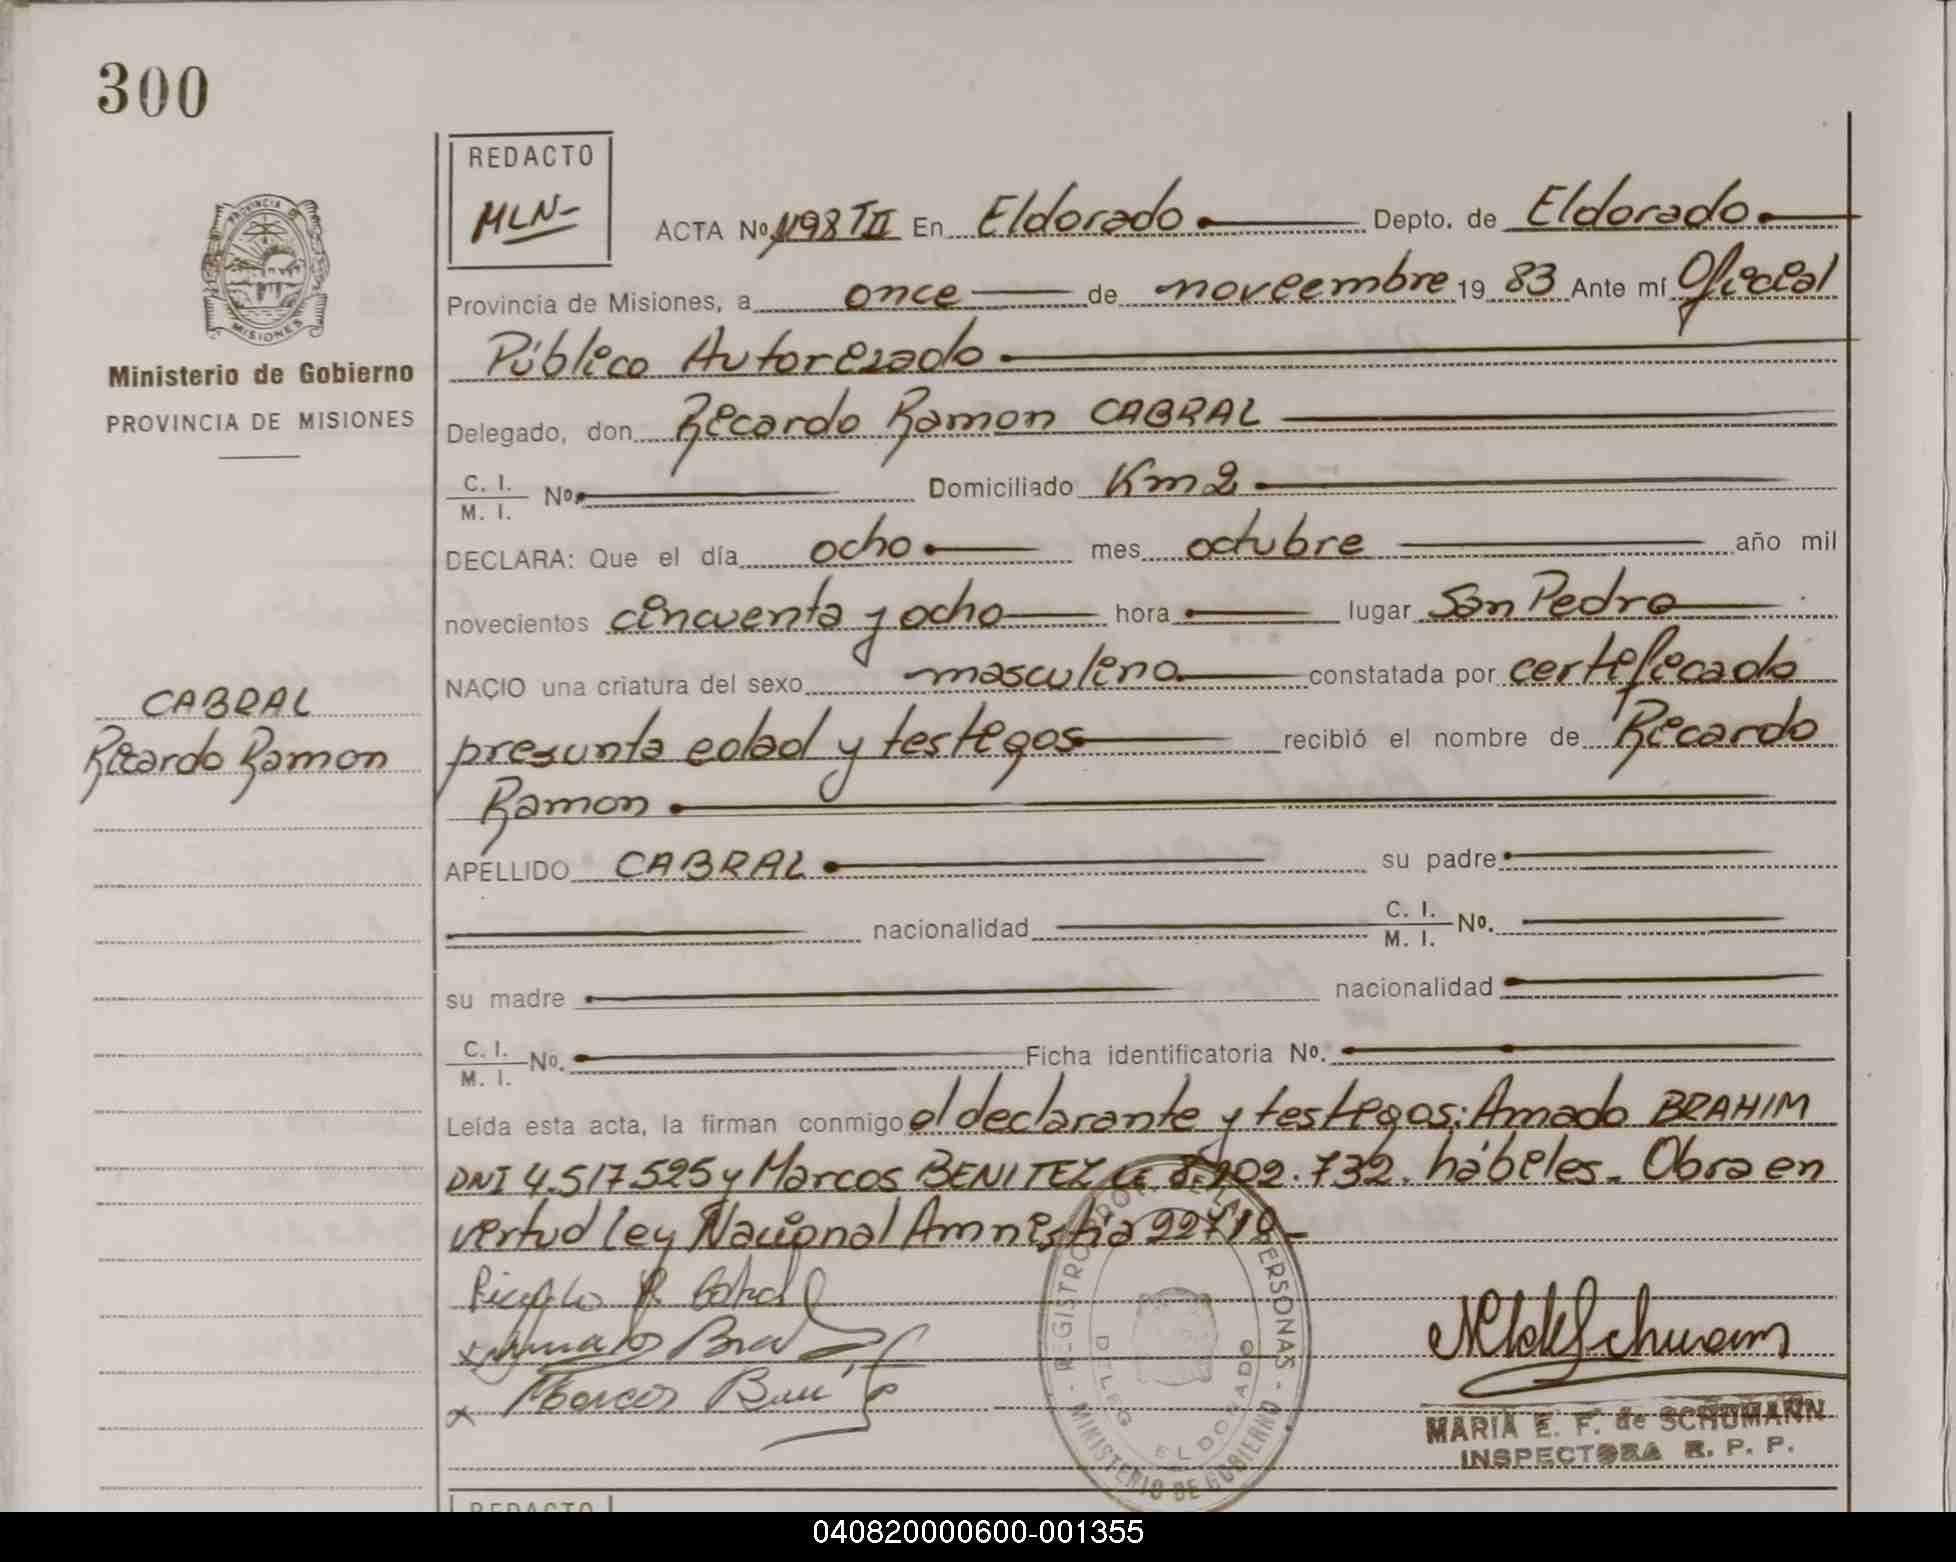 300
REDACTO
MLN-
PROVINCIA DE
MISIONES
ACTA Nº 1198 TII En Eldorado Depto. de Eldorado
Provincia de Misiones, a once de noveembre 19 83 Ante mí Oficial
Ministerio de Gobierno
Público Autorizado
PROVINCIA DE MISIONES
Delegado, don Ricardo Ramon CABRAL
C. I.
M. I. Nº Domiciliado Km 2
DECLARA: Que el día ocho mes octubre año mil
novecientos cincuenta y ocho hora lugar San Pedro
NACIO una criatura del sexo masculino constatada por certificado
CABRAL
Ricardo Ramon
presunta edad y testigos recibió el nombre de Ricardo
Ramon
APELLIDO CABRAL su padre
nacionalidad C. I.
M. I. Nº.
su madre nacionalidad
C. I.
M. I. Nº. Ficha identificatoria Nº.
Leída esta acta, la firman conmigo el declarante y testigos: Amado BRAHIM
DNI 4.517.525 y Marcos BENITEZ LE 8.202.732. hábiles. Obra en
virtud ley Nacional Amnistía 22718-
REGISTRO DE LAS PERSONAS
DELEG ELDORADO
MINISTERIO DE GOBIERNO
Marcos
MARIA E. F. de SCHUMANN
INSPECTORA R. P. P.
REDACTO
040820000600-001355